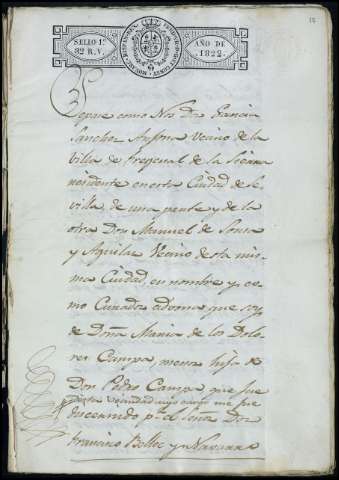 SELLO 1º
82 R. V.
AÑO DE
1822.
Sepase como Nos Dn Garcia
Sanchez Vecino de la
Villa de Fregenal de la Sierra
residente en esta Ciudad de Se
villa, de una parte y de la
otra Don Manuel de Sousa
y Aguilar Vecino de esta mis
ma Ciudad, en nombre y co
mo Curador adbona que soy
de Doña Maria de los Dolo
res Campa, menor hija de
Don Pedro Campa que fue
de esta vecindad cuyo cargo me fue
discernido pr el Señor Dn
Francisco y Navarro